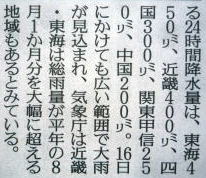 る24時間降水量は、東海4
50㍉、近畿400㍉、四
国300㍉、関東甲信25
0㍉、中国200㍉。16日
にかけても広い範囲で大雨
が見込まれ、気象庁は近畿
・東海は総雨量が平年の8
月1か月分を大幅に超える
地域もあるとみている。